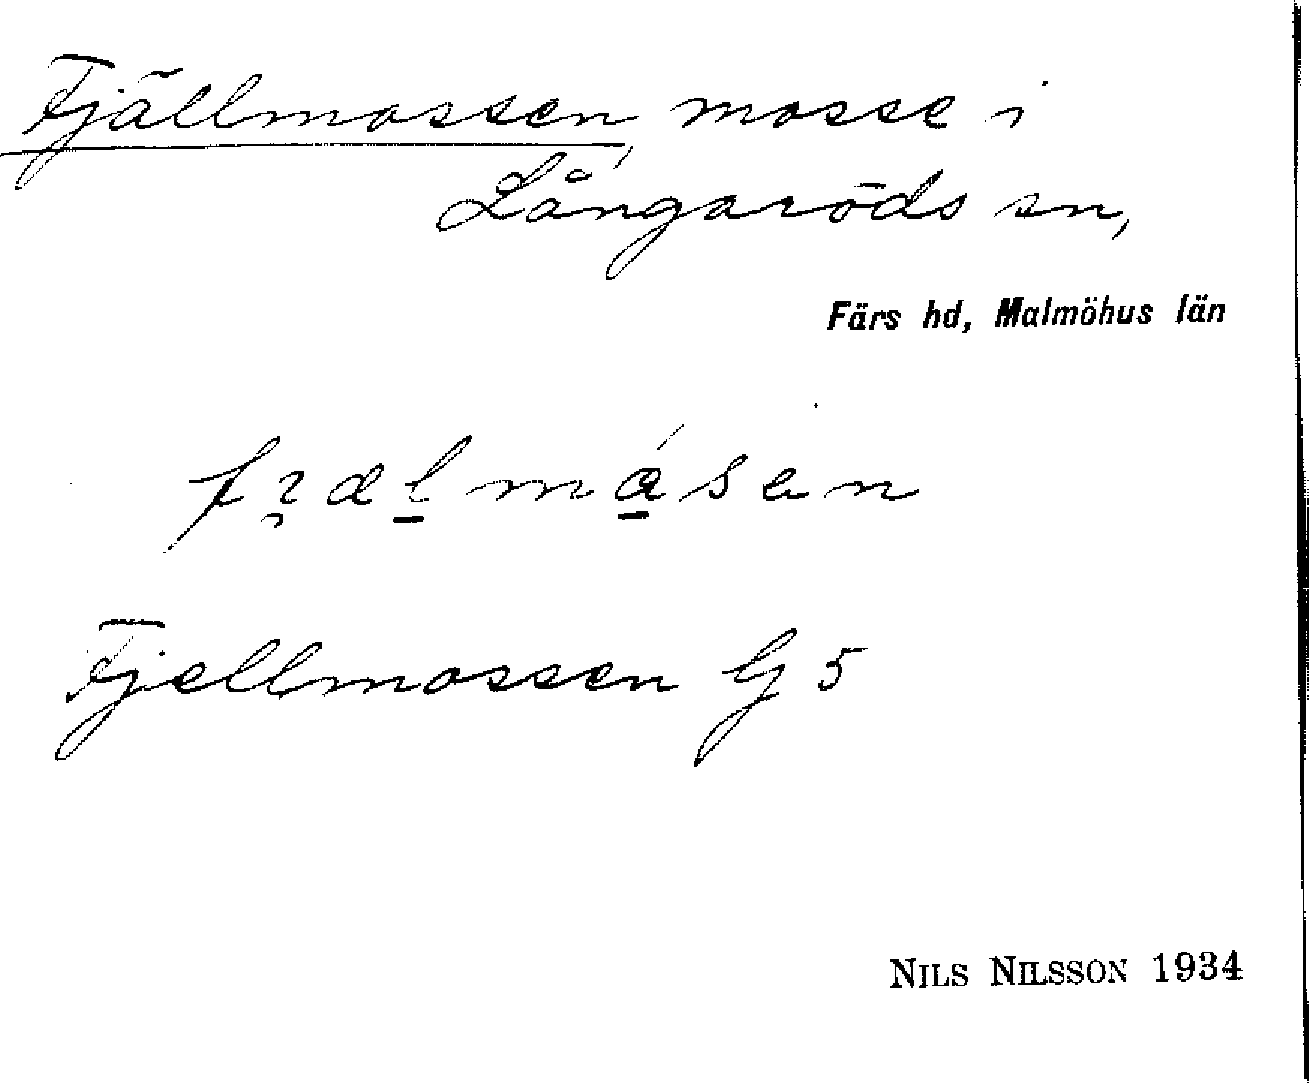 Fjällmossen, mosse i
Långaröds sn,
Färs hd, Malmöhus län
Fjellmossen G 5
NILS NILSSON 1934